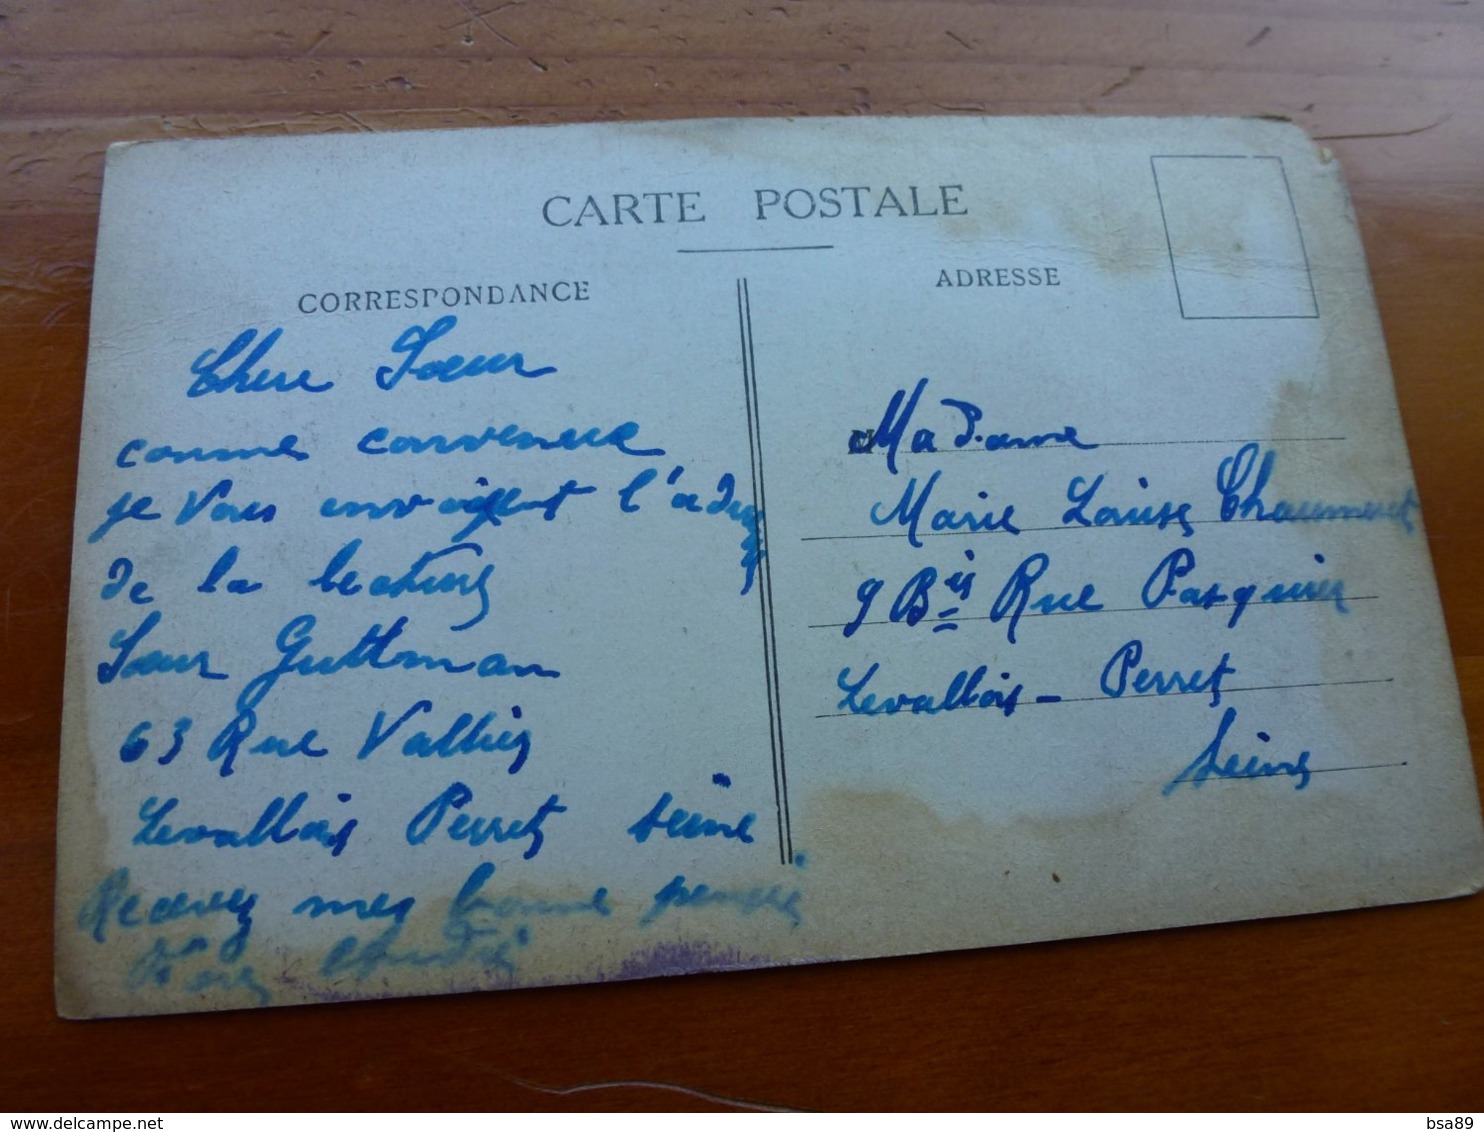 CARTE POSTALE
CORRESPONDANCE
Chere Sœur
comme convenue
je Vous l'adresse
de la
Sœur Guttman
63 Rue Vallier
Levallois Perret Seine
Recevez mes bonne pensée
ADRESSE
Madame
Marie Louise
9 Bis Rue Pasquier
Levallois - Perret
Seine
delcampe.net
bsa89